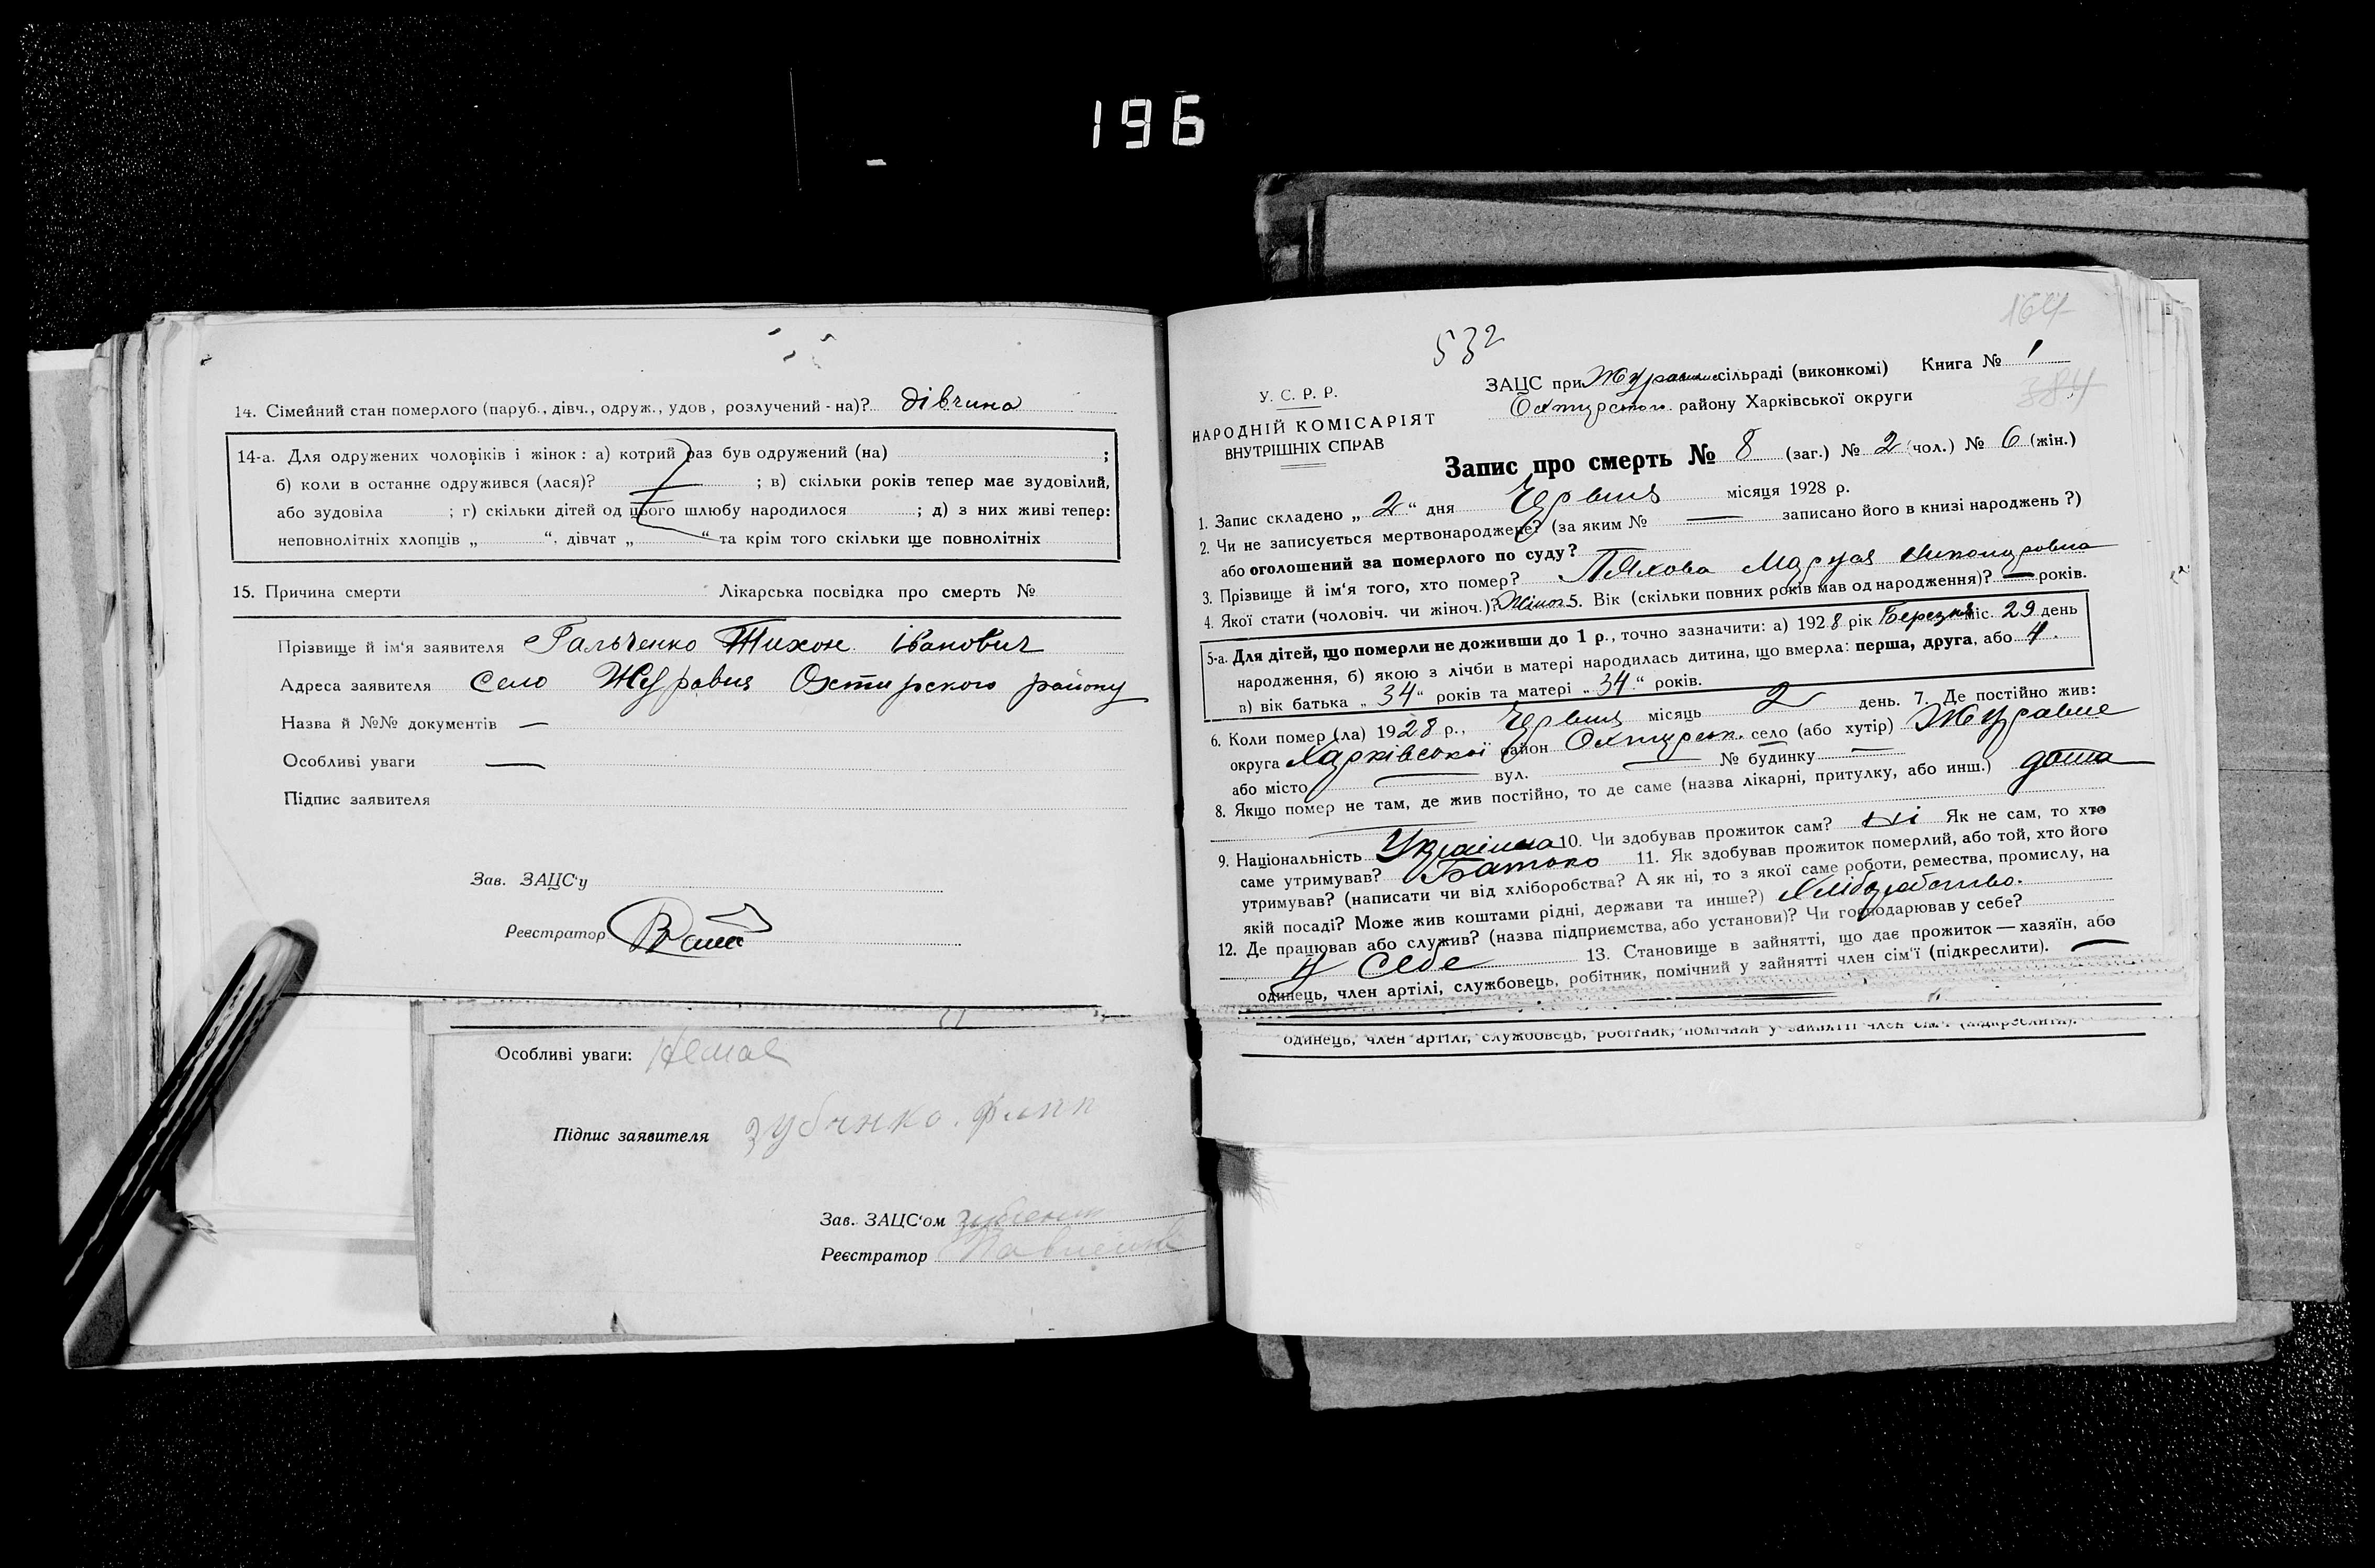 196
14. Сімейний стан померлого (паруб., дівч., одруж., удов, розлучений-на)? дівчина
14-а. Для одружених чоловіків і жінок: а) котрий раз був одружений (на) ;
б) коли в останнє одружився (лася)? — ; в) скільки років тепер має зудовілий,
або зудовіла ; г) скільки дітей од цього шлюбу народилося ; д) з них живі тепер:
неповнолітніх хлопців „ “, дівчат „ “ та крім того скільки ще повнолітніх
15. Причина смерти Лікарська посвідка про смерть №
Прізвище й ім'я заявителя Гальченко Тихон Іванович
Адреса заявителя село Журавня Охтирского району
Назва й №№ документів —
Особливі уваги —
Підпис заявителя
Зав. ЗАЦС'у
Реєстратор
Особливі уваги: Немає
Підпис заявителя зубчнко.
Зав. ЗАЦС'ом
Реєстратор
164
532
У. С. Р. Р.
НАРОДНІЙ КОМІСАРІЯТ
ВНУТРІШНІХ СПРАВ
ЗАЦС при сільраді (виконкомі) Книга № 1
Охтирського району Харківської округи
384
Запис про смерть № 8 (заг.) № 2 (чол.) № 6 (жін.)
1. Запис складено „ 2 “ дня Червня місяця 1928 р.
2. Чи не записується мертвонароджене? (за яким № — записано його в книзі народжень?)
або оголошений за померлого по суду?
3. Прізвище й ім'я того, хто помер? Ляхова Маруся
4. Якої стати (чоловіч. чи жіноч.)? Жіноч 5. Вік (скільки повних років мав од народження)? — років.
5-а. Для дітей, що померли не доживши до 1 р., точно зазначити: а) 1928 рік Березня міс. 29 день
народження, б) якою з лічби в матері народилась дитина, що вмерла: перша, друга, або 4.
в) вік батька „ 34 “ років та матері „ 34 “ років.
6. Коли помер (ла) 1928 р., Червня місяць 2 день. 7. Де постійно жив:
округа Харківської район Охтирськ. село (або хутір) Журавне
або місто — вул. — № будинку —
8. Якщо помер не там, де жив постійно, то де саме (назва лікарні, притулку, або инш.) дома
9. Національність Українка 10. Чи здобував прожиток сам? ні Як не сам, то хто
саме утримував? Батько 11. Як здобував прожиток померлий, або той, хто його
утримував? (написати чи від хліборобства? А як ні, то з якої саме роботи, ремества, промислу, на
якій посаді? Може жив коштами рідні, держави та инше?) Хліборобство.
12. Де працював або служив? (назва підприємства, або установи)? Чи господарював у себе?
У Себе 13. Становище в зайнятті, що дає прожиток — хазяїн, або
одинець, член артілі, службовець, робітник, помічний у зайнятті член сім'ї (підкреслити). —
одинець, член артілі, службовець, робітник, помічний у зайнятті член сім'ї (підкреслити).